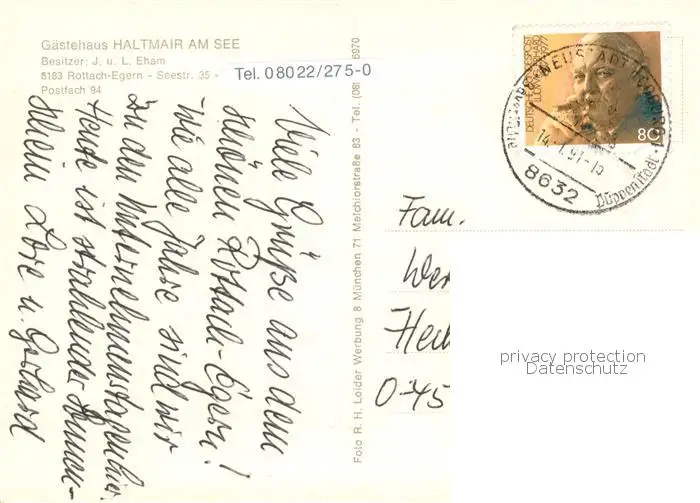 Gästehaus HALTMAIR AM SEE
Besitzer: J. u. L. Eham
8183 Rottach-Egern - Seestr. 35 -
Postfach 94
Tel. 08022/275-0
Viele Grüße aus dem
schönen Rottach-Egern!
Wie alle Jahre sind wir
zu den Unternehmenstagen hier.
Heute ist strahlender Sonnen-
schein Lore u. Gerhard
Foto R. H. Loider Werbung 8 München 71 Melchiorstraße 63 - Tel. (089) 6970
DEUTSCHE BUNDESPOST
LUDWIG ERHARD
1977
80
NEUSTADT
14. 1. 91-15
8632
Puppenstadt
Fam.
Wer
Hei
O-45
privacy protection
Datenschutz